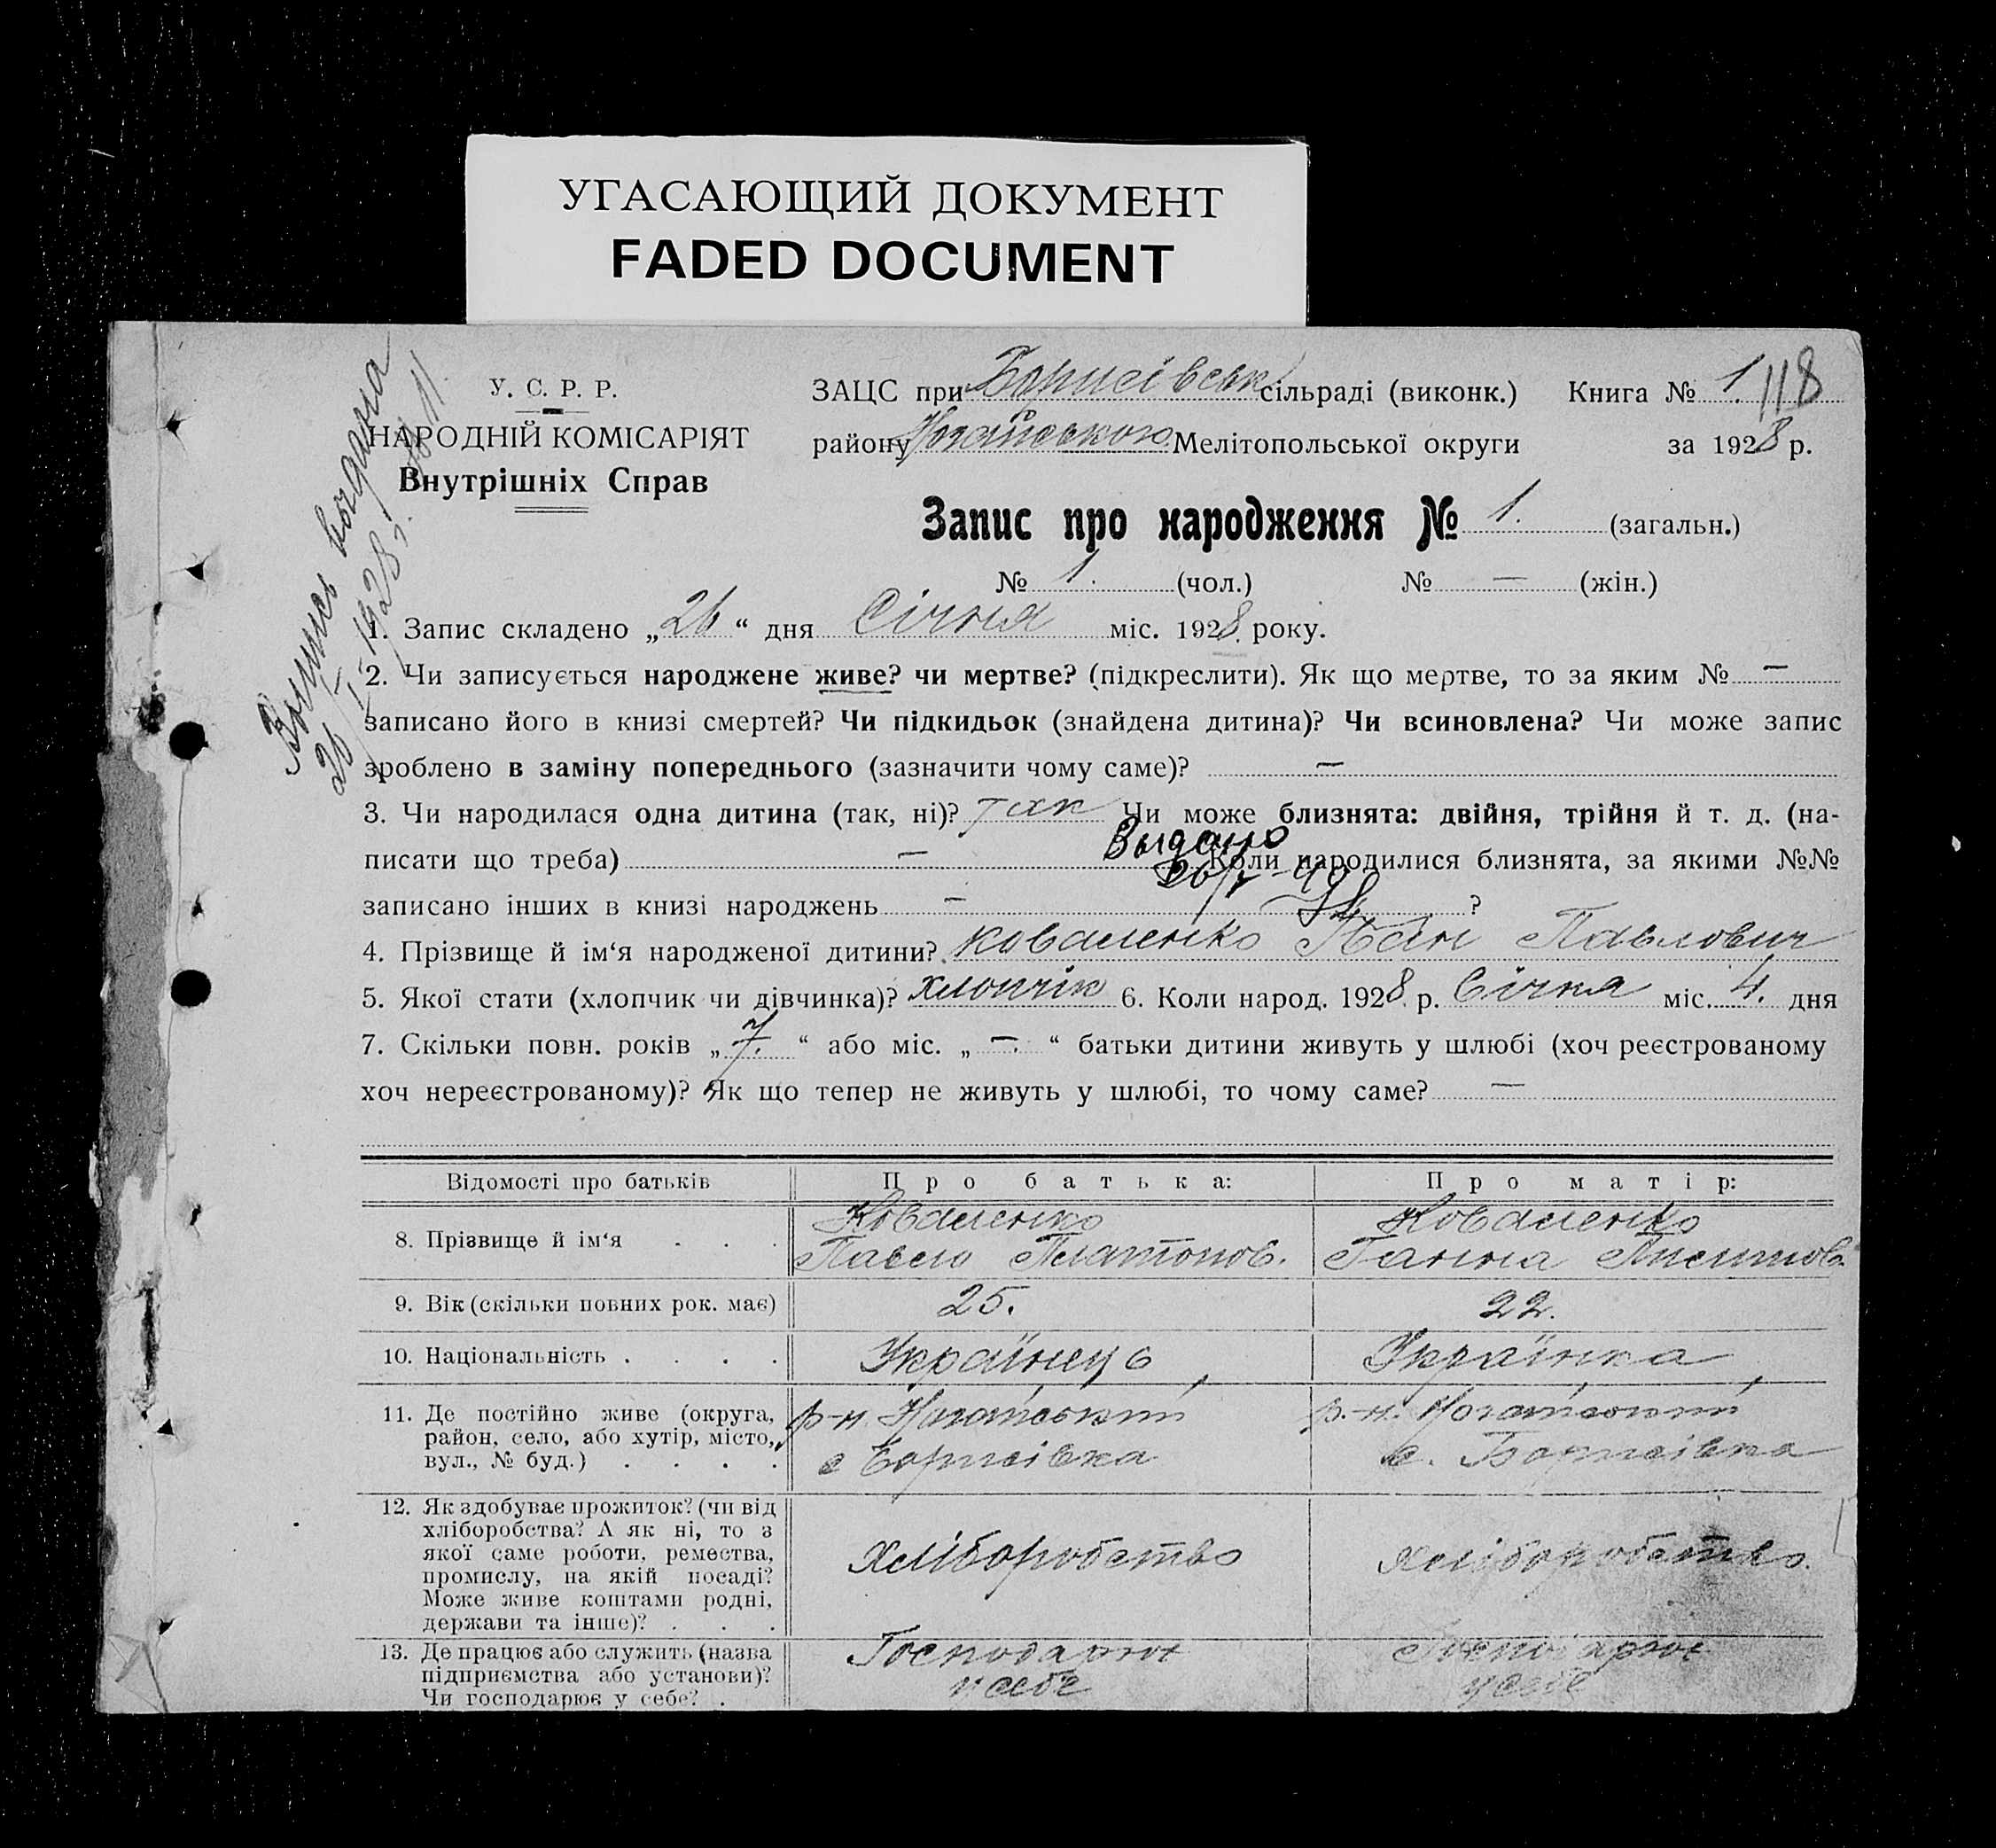 УГАСАЮЩИЙ ДОКУМЕНТ
FADED DOCUMENT
Выпись выдана
26/I-1928 г. № 11.
У. С. Р. Р.
НАРОДНІЙ КОМІСАРІЯТ
Внутрішніх Справ
ЗАЦС при Борисівськ сільраді (виконк.) Книга № 1. 118
району Ногайського Мелітопольської округи за 1928 р.
Запис про народження № 1. (загальн.)
№ 1. (чол.) № — (жін.)
1. Запис складено „26“ дня Січня міс. 1928. року.
2. Чи записується народжене живе? чи мертве? (підкреслити). Як що мертве, то за яким № —
записано його в книзі смертей? Чи підкидьок (знайдена дитина)? Чи всиновлена? Чи може запис
зроблено в заміну попереднього (зазначити чому саме)? —
3. Чи народилася одна дитина (так, ні)? так Чи може близнята: двійня, трійня й т. д. (на-
Выдано
писати що треба) — Коли народилися близнята, за якими №№
записано інших в книзі народжень — ?
4. Прізвище й ім‘я народженої дитини? Коваленко Іван Павлович
5. Якої стати (хлопчик чи дівчинка)? хлопчік 6. Коли народ. 1928. р. Січня міс. 4. дня
7. Скільки повн. років „7.“ або міс. „—.“ батьки дитини живуть у шлюбі (хоч реєстрованому
хоч нереєстрованому)? Як що тепер не живуть у шлюбі, то чому саме? —
Відомості про батьків Про батька: Про матір:
8. Прізвище й ім‘я . . . Коваленко Коваленко
Павло Платонов. Ганна
9. Вік (скільки повних рок. має) 25. 22.
10. Національність . . . . Українець Українка
11. Де постійно живе (округа, р-н. Ногайський р.-н. Ногайський
район, село, або хутір, місто, с Борисівка с. Борисівка
вул., № буд.) . . . .
12. Як здобуває прожиток? (чи від
хліборобства? А як ні, то з
якої саме роботи, ремества, хліборобство хліборобство.
промислу, на якій посаді?
Може живе коштами родні,
держави та інше)? . . .
13. Де працює або служить (назва Господарює Господарює
підприємства або установи)? у себе у себе
Чи господарює у себе? .